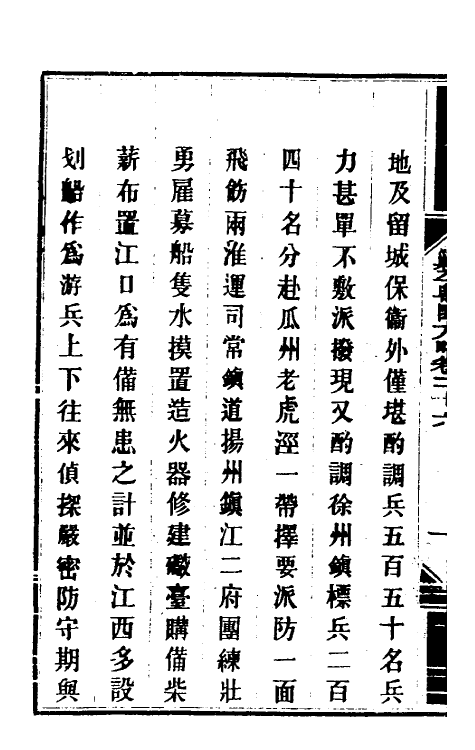 地及留城保衞外僅堪酌調兵五百五十名兵
力甚單不敷派撥現又酌調徐州鎭標兵二百
四十名分赴瓜州老虎涇一帶擇要派防一面
飛飭兩淮運司常鎭道揚州鎭江二府團練壯
勇雇募船隻水摸置造火器修建礮臺購備柴
薪布置江口爲有備無患之計並於江西多設
划船作爲游兵上下往來偵探嚴密防守期與